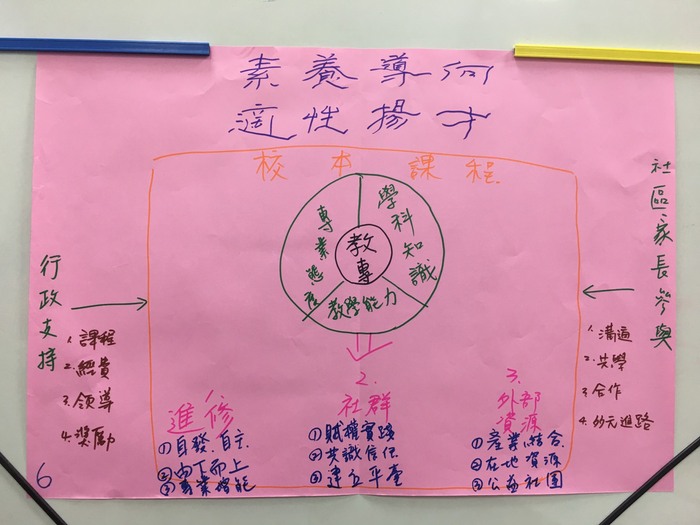 素養導向
適性揚才
校本課程
教專
專業態度
學科知識
教學能力
行政支持
1. 課程
2. 經費
3. 領導
4. 獎勵
社區家長參與
1. 溝通
2. 共學
3. 合作
4. 多元進路
進修
①自發.自主
②由下而上
③專業增能
2.
社群
①賦權實踐
②共識信任
③建立平臺
3.
外部
資源
①產業結合
②在地資源
③公益社團
6